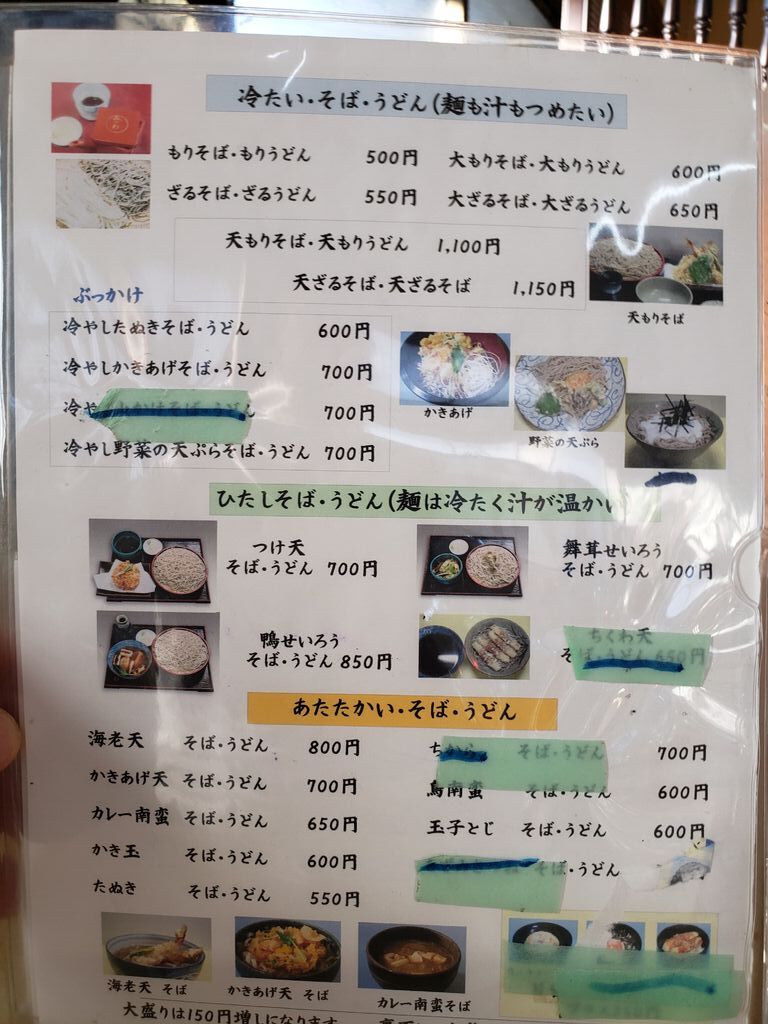 冷たい・そば・うどん(麺も汁もつめたい)
もりそば・もりうどん 500円 大もりそば・大もりうどん 600円
ざるそば・ざるうどん 550円 大ざるそば・大ざるうどん 650円
天もりそば・天もりうどん 1,100円
天ざるそば・天ざるそば 1,150円
天もりそば
ぶっかけ
冷やしたぬきそば・うどん 600円
冷やしかきあげそば・うどん 700円
冷や そば・うどん 700円
冷やし野菜の天ぷらそば・うどん 700円
かきあげ
野菜の天ぷら
ひたしそば・うどん(麺は冷たく汁が温かい
つけ天
そば・うどん 700円
舞茸せいろう
そば・うどん 700円
鴨せいろう
そば・うどん 850円
ちくわ天
そば・うどん 650円
あたたかい・そば・うどん
海老天 そば・うどん 800円
かきあげ天 そば・うどん 700円
カレー南蛮 そば・うどん 650円
かき玉 そば・うどん 600円
たぬき そば・うどん 550円
ちから そば・うどん 700円
鳥南蛮 そば・うどん 600円
玉子とじ そば・うどん 600円
そば・うどん
海老天 そば
かきあげ天 そば
カレー南蛮そば
大盛りは150円増しになります